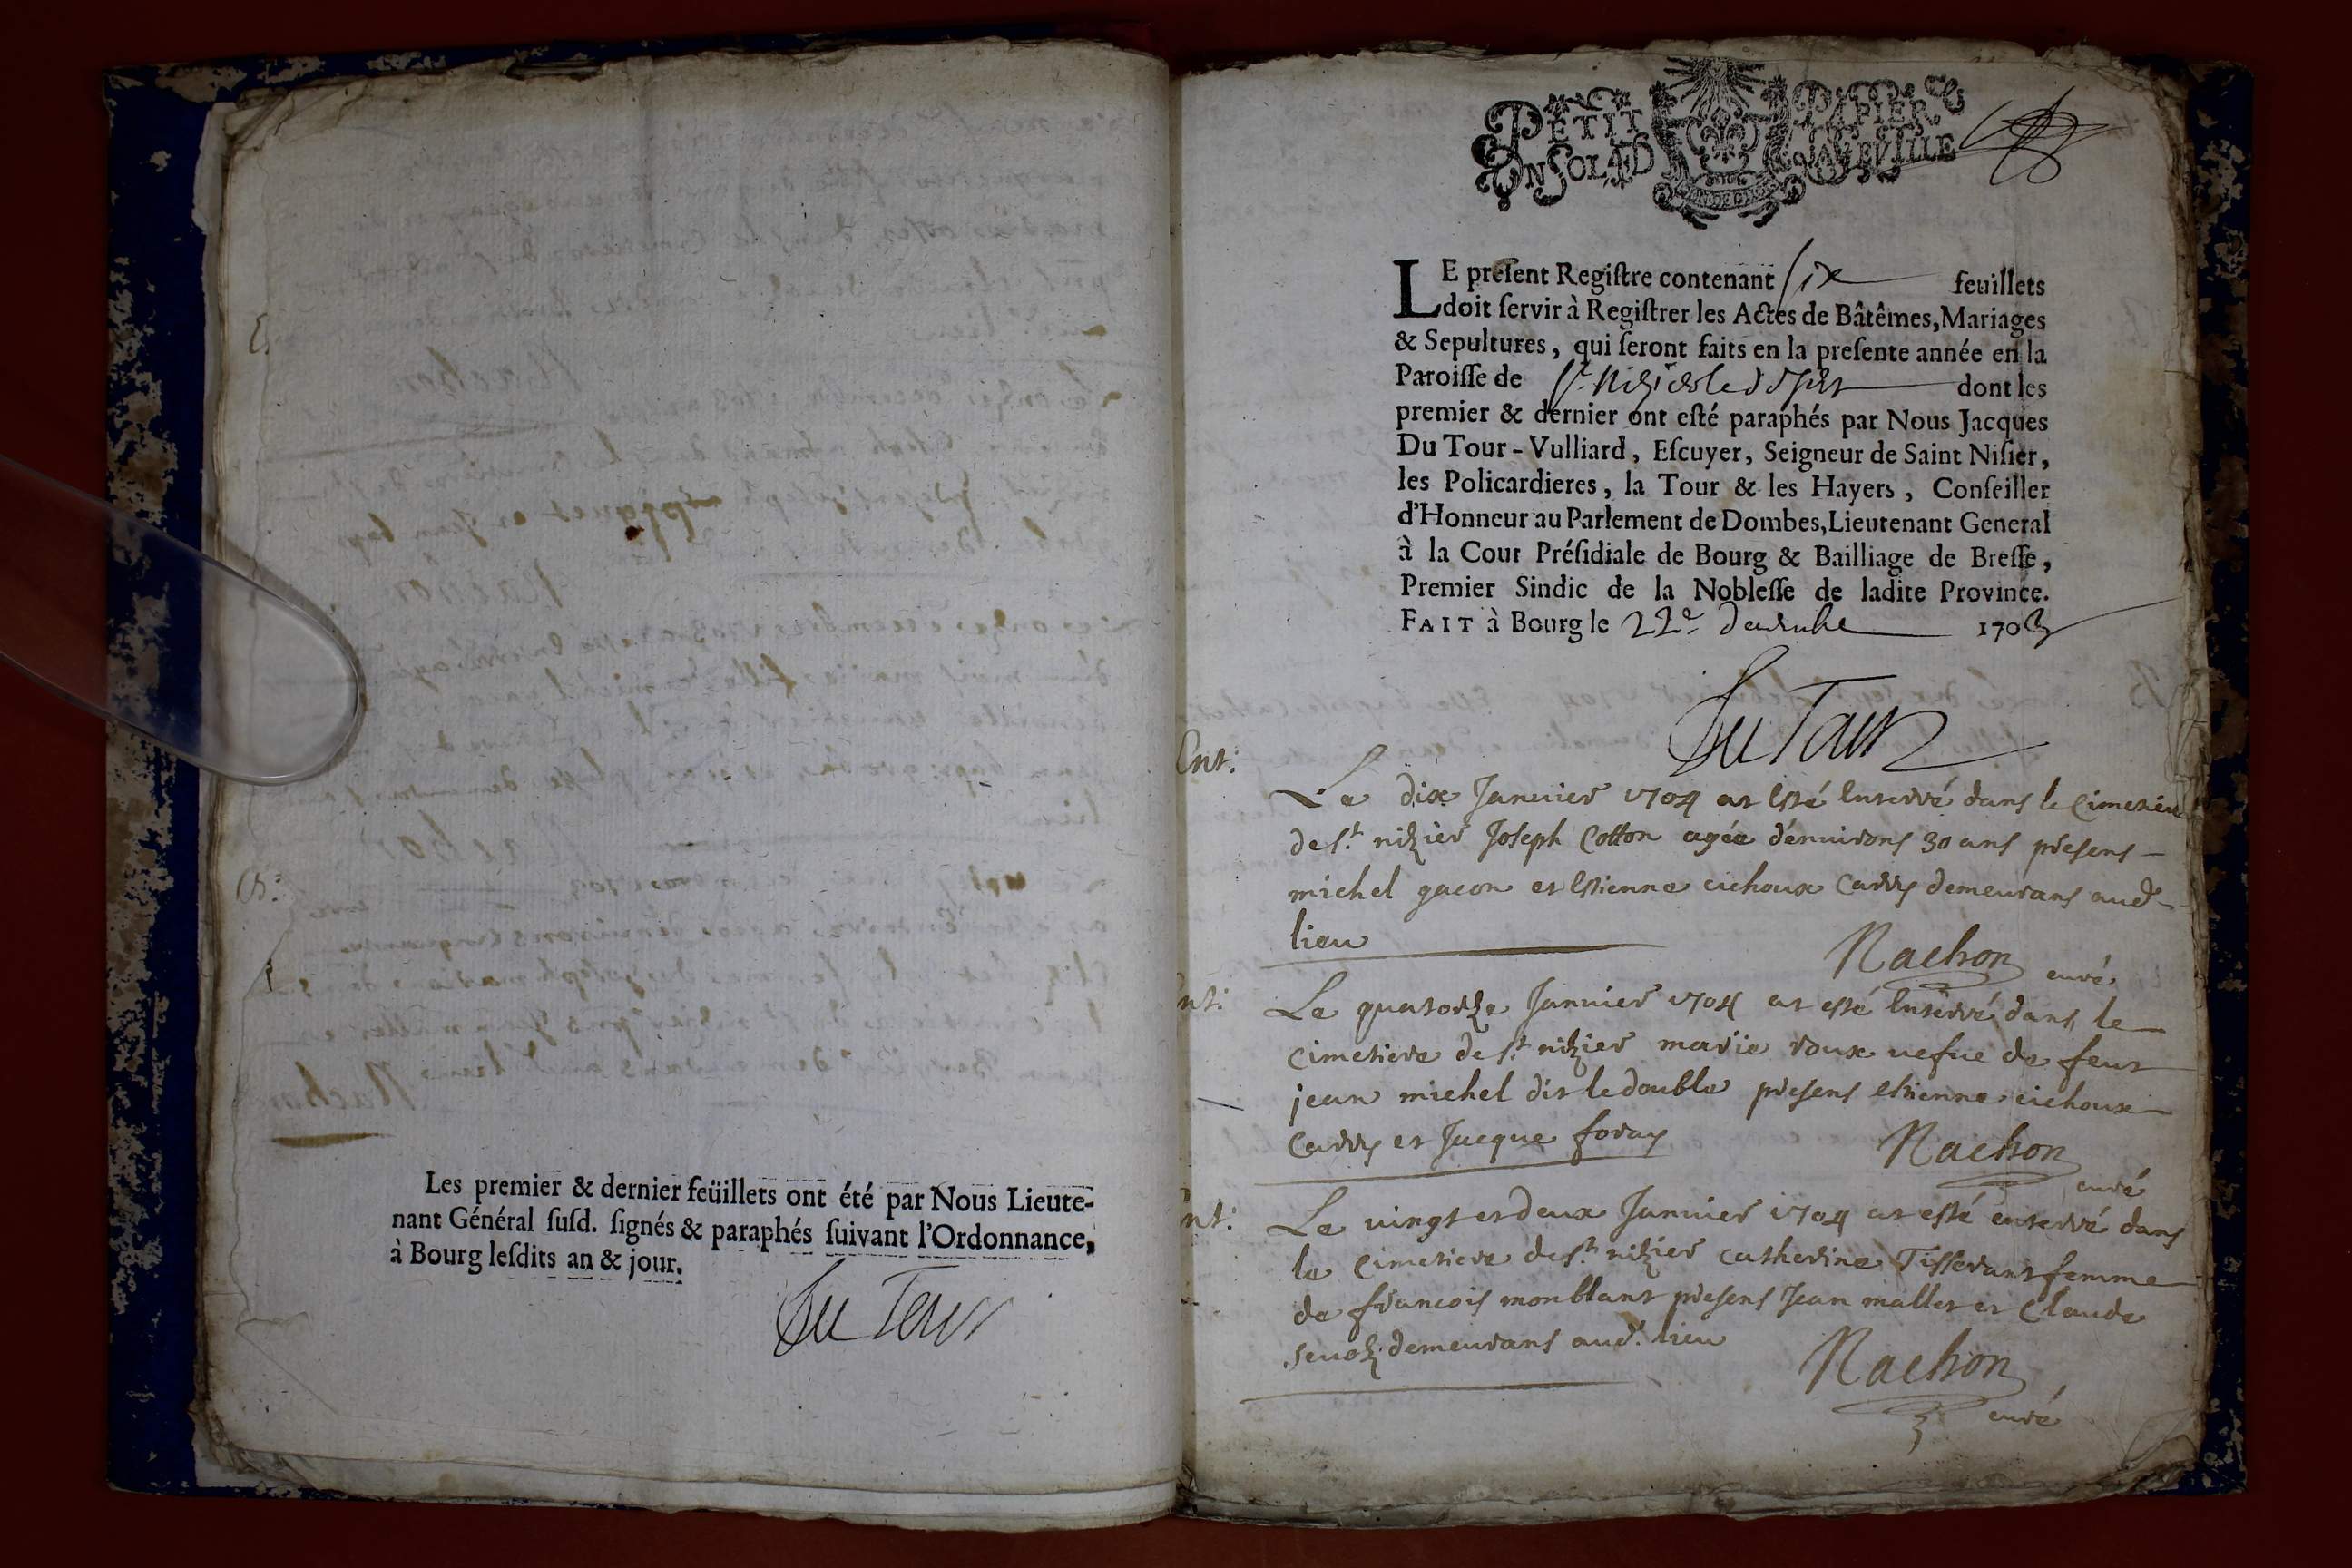 Les premier & dernier feüillets ont été par Nous Lieute-
nant Général ſuſd. ſignés & paraphés ſuivant l'Ordonnance,
à Bourg leſdits an & jour.
Du Tour
PETIT PAPIER
UN SOL 4D LA FEVILLE
LE preſent Regiſtre contenant ſix feuillets
doit ſervir à Regiſtrer les Actes de Bâtêmes, Mariages
& Sepultures, qui ſeront faits en la preſente année en la
Paroiſſe de St Nizier le desert dont les
premier & dernier ont eſté paraphés par Nous Jacques
Du Tour-Vulliard, Eſcuyer, Seigneur de Saint Niſier,
les Policardieres, la Tour & les Hayers, Conſeiller
d'Honneur au Parlement de Dombes, Lieutenant General
à la Cour Préſidiale de Bourg & Bailliage de Breſſe,
Premier Sindic de la Nobleſſe de ladite Province.
FAIT à Bourg le 22e decembre 1703
Du Tour
Ent:
Le dix Januier 1704 at esté enterré dans le Cimetiere
de st nizier Joseph Cotton agée d'enuirons 30 ans presens
michel gacon et estienne cichoux Carry demeurans aud
lieu
Nachon curé
Ent:
Le quatorze Januier 1704 at esté enterré dans le
cimetiere de st nizier marie roux uefue de feut
jean michel dit ledouble presens estienne cichoux
Carry et Jacque foray
Nachon
curé
Ent:
Le vingt et deux Januier 1704 at esté enterré dans
le cimetiere de st nizier catherine Tisserant femme
de francois monblant presens Jean mallet et Claude
demeurans aud. lieu
Nachon
curé